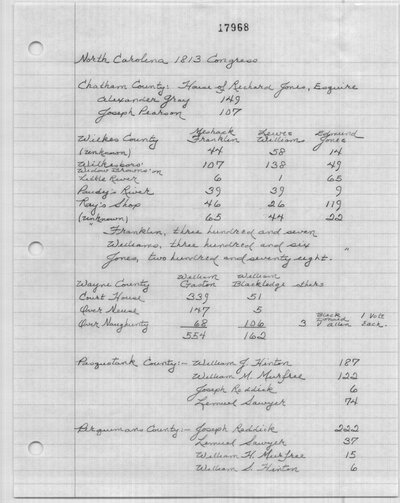 17968
North Carolina 1813 Congress
Chatham County: House of Richard Jones, Esquire
Alexander Gray 149
Joseph Pearson 107
Meshack Lewis Edmund
Wilkes County Franklin Williams Jones
(Unknown) 44 58 14
Wilkesboro' 107 138 49
Widow Browns' on
Little River 6 1 65
Purdy's River 39 39 9
Ray's Shop 46 26 119
(Unknown) 65 44 22
" Franklin, three hundred and seven
Williams, three hundred and six
Jones, two hundred and seventy eight. "
William William
Wayne County Gaston Blackledge others
Court House 339 51
Over Neuse 147 5
Over Naughunty 68 106 3 Black 1 Vote
allen Each.
554 162
Pasquotank County:- William J. Hinton 187
William M. Murfree 122
Joseph Reddick 6
Lemuel Sawyer 74
Perquimans County:- Joseph Reddick 222
Lemuel Sawyer 37
William H. Murfree 15
William S. Hinton 6